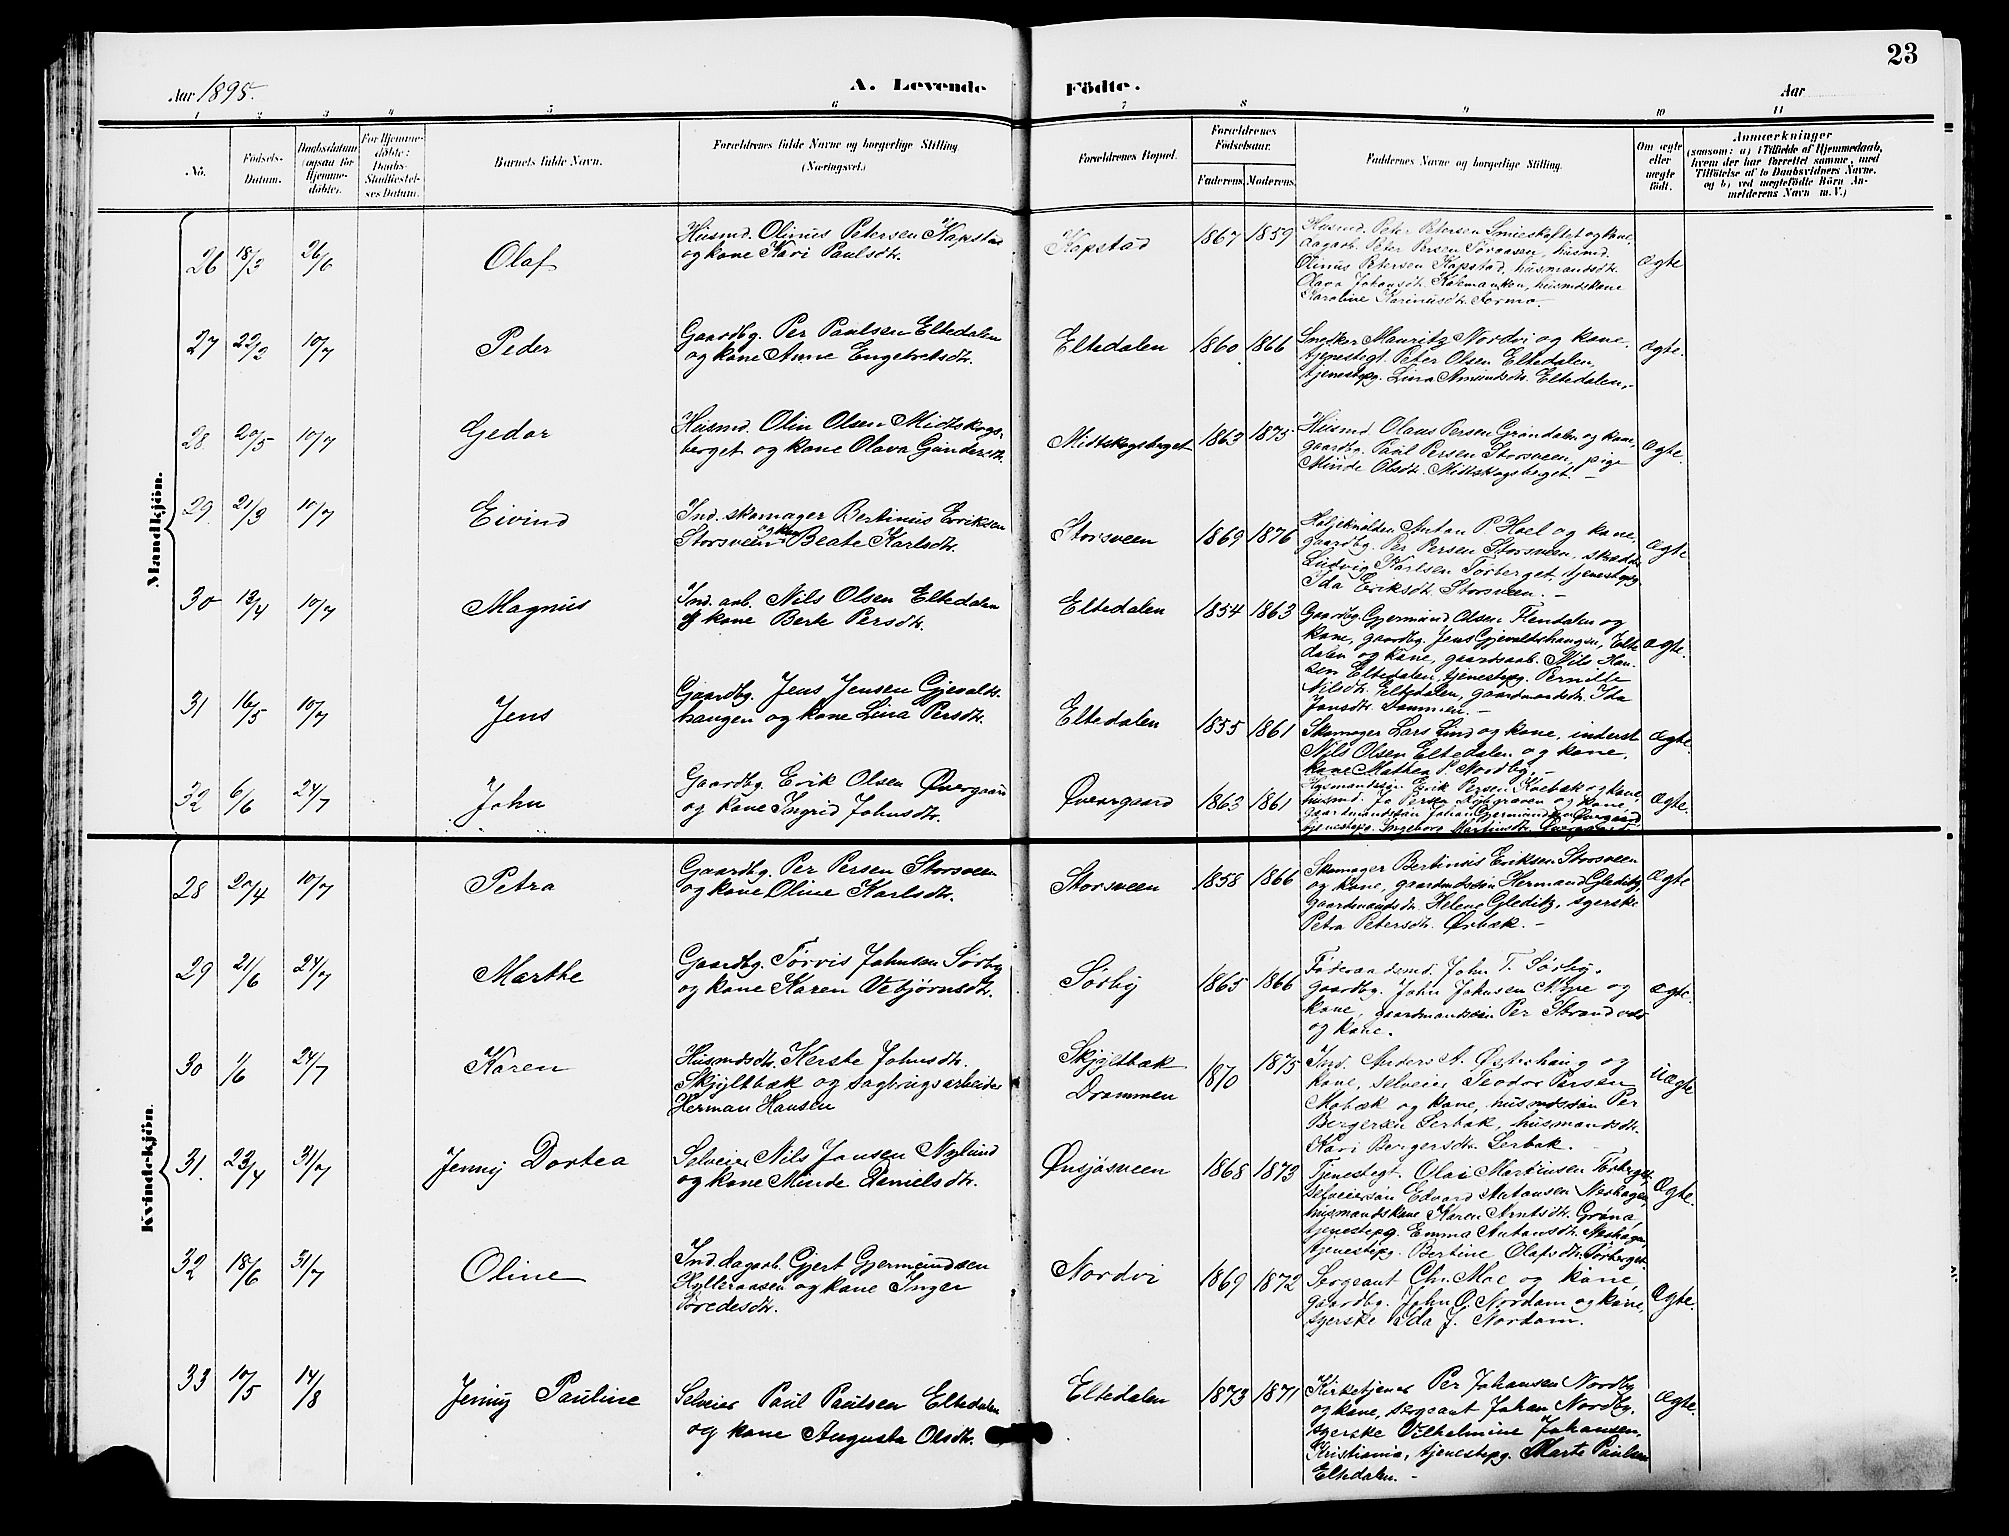 23
Aar 1895.
A. Levende
Födte.
Aar
1 2 3 4 5 6 7 8 9 10 11
No.
Födsels-Datum.
Daabsdatum (ogsaa for Hjemme-döbte).
For Hjemme-döbte: Daabs-Stadfæstel-ses Datum.
Barnets fulde Navn.
Forældrenes fulde Navne og borgerlige Stilling (Næringsvei.)
Forældrenes Bopæl.
Forældrenes Födselsaar.
Faderens. Moderens.
Faddernes Navne og borgerlige Stilling.
Om ægte eller uægte födt.
Anmærkninger
(saasom: a) i Tilfælde af Hjemmedaab,
hvem der har forrettet samme, med
Tilföielse af to Daabsvidners Navne.
og b) ved uægtefödte Börn An-
melderens Navn m. V.)
Mandkjön.
26 18/3 26/6 Olaf
Husmd. Olinus Petersen Kapstad
og kone Kari Paulsdtr.
Kapstad 1867 1859
Husmd. Peter Petersen Smieskaftet og kone,
dagarb. Peter Persen Töraasen, husmd.
Olinus Petersen Kapstad, husmandsdtr.
Olava Johansdtr. husmdskone
Karoline Karinusdtr. Formo.
ægte
27 22/3 10/7 Peder
Gaardbg. Per Paulsen Eltedalen
og kone Anne Engebretsdtr.
Eltedalen 1860 1866
Snedker Mauritz Nordvi og kone,
tjenestegt. Peter Olsen Eltedalen,
tjenestepg. Lina Amundsdtr. Eltedalen.
ægte.
28. 20/5 10/7 Gedor
Husmd. Olin Olsen Midtskogs-
berget og kone Olava Gundersdtr.
Midtskogsberget 1863 1875
Husmd. Olaus Persen Gröndalen og kone,
gaardbg. Paul Persen Storsveen, pige
Minde Olsdtr. Midtskogsberget.
ægte.
29. 21/3 10/7 Eivind
Ind. skomager Bertinus Eriksen
Storsveen og kone Beate Karlsdtr.
Storsveen 1869 1876
Anton P. Hoel og kone,
gaardbg. Per Persen Storsveen, skrædder
Ludvig Karlsen Törberget, tjenestepg.
Ida Eriksdtr. Storsveen.
ægte.
30 13/4 10/7 Magnus
Ind. arb. Nils Olsen Eltedalen
og kone Berte Persdtr.
Eltedalen 1854 1863
Gaardbg. Gjermund Olsen Flendalen og
kone, gaardbg. Jens Gjevaldshaugen, Elte-
dalen og kone, gaardsarb. Nils Han-
sen Eltedalen, tjenestepg. Pernille
Nilsdtr. Eltedalen, gaardmandsdtr. Ida
Jonsdtr. Dammen.
ægte.
31 16/5 10/7 Jens
Gaardbg. Jens Jensen Gjevalds-
haugen og kone Lina Persdtr.
Eltedalen 1855 1861
Skomager Lars Lind og kone, inderst
Nils Olsen Eltedalen og kone,
kone Mathea P. Nordby.
ægte.
32 6/6 24/7 John
Gaardbg. Erik Olsen Øvergaard
og kone Ingrid Johnsdtr.
Øvergaard 1863 1861
Husmandssøn Erik Persen Koebæk og kone,
husmd. Jo Persen og kone,
gaardmandssøn Johan Gjermundsen Øvergaard,
tjenestepg. Ingeborg Martinsdtr. Øvergaard.
ægte.
Kvindekjön.
28 20/4 10/7 Petra
Gaardbg. Per Persen Storsveen
og kone Oline Karlsdtr.
Storsveen 1858 1866
Skomager Bertinus Eriksen Storsveen
og kone, gaardmdssøn Herman Gleditz,
gaardmandsdtr. Helene Gleditz, syerske
Petra Petersdtr. Ørbæk.
ægte
29 21/6 24/7 Marthe
Gaardbg. Törvis Johnsen Sörby
og kone Karen Vebjörnsdtr.
Sörby 1865 1866
Föderaadsmd. John T. Sörby,
gaardbg. John Johnsen Nype og
kone, gaardmandssøn Per Strandvold
og kone.
ægte.
30 1/6 24/7 Karen
Husmdsdtr. Kerste Johnsdtr.
Skjyltbæk og sagbrugsarbeider
Herman Hansen
Skjyltbæk
Drammen
1870 1875
Ind. Anders A. Østerhaug og
kone, selveier Teodor Persen
Mobæk og kone, husmdssøn Per
Bergersen Lerbæk, husmandsdtr.
Kari Bergersdtr. Lerbæk.
uægte
31. 23/4 31/7 Jenny Dortea
Selveier Nils Jonsen Nylund
og kone Minde Danielsdtr.
Ønsjøsveen 1868 1873
Tjenestegt. Olai Martinsen Törberget,
selveiersøn Edvard Antonsen Neshagen,
husmandskone Karen Arntsdtr. Gröna,
tjenestepg. Emma Antonsdtr. Neshagen,
tjenestepg. Bertine Olafsdtr. Törberget.
ægte.
32 18/6 31/7 Oline
Ind. dagarb. Gjert Gjermundsen
Hylleraasen og kone Inger
Töresdtr.
Nordvi 1869 1872
Sergeant Chr. Moe og kone,
gaardbg. John O. Nordom og kone,
syerske Ida J. Nordom.
ægte.
33 10/5 14/8 Jenny Pauline
Selveier Paul Paulsen Eltedalen
og kone Augusta Olsdtr.
Eltedalen 1873 1871
Kirketjener Per Johansen Nordby
og kone, sergeant Johan Nordby,
syerske Vilhelmine Johansen,
Kristiania, tjenestepg. Marte Paulsen
Eltedalen.
ægte.